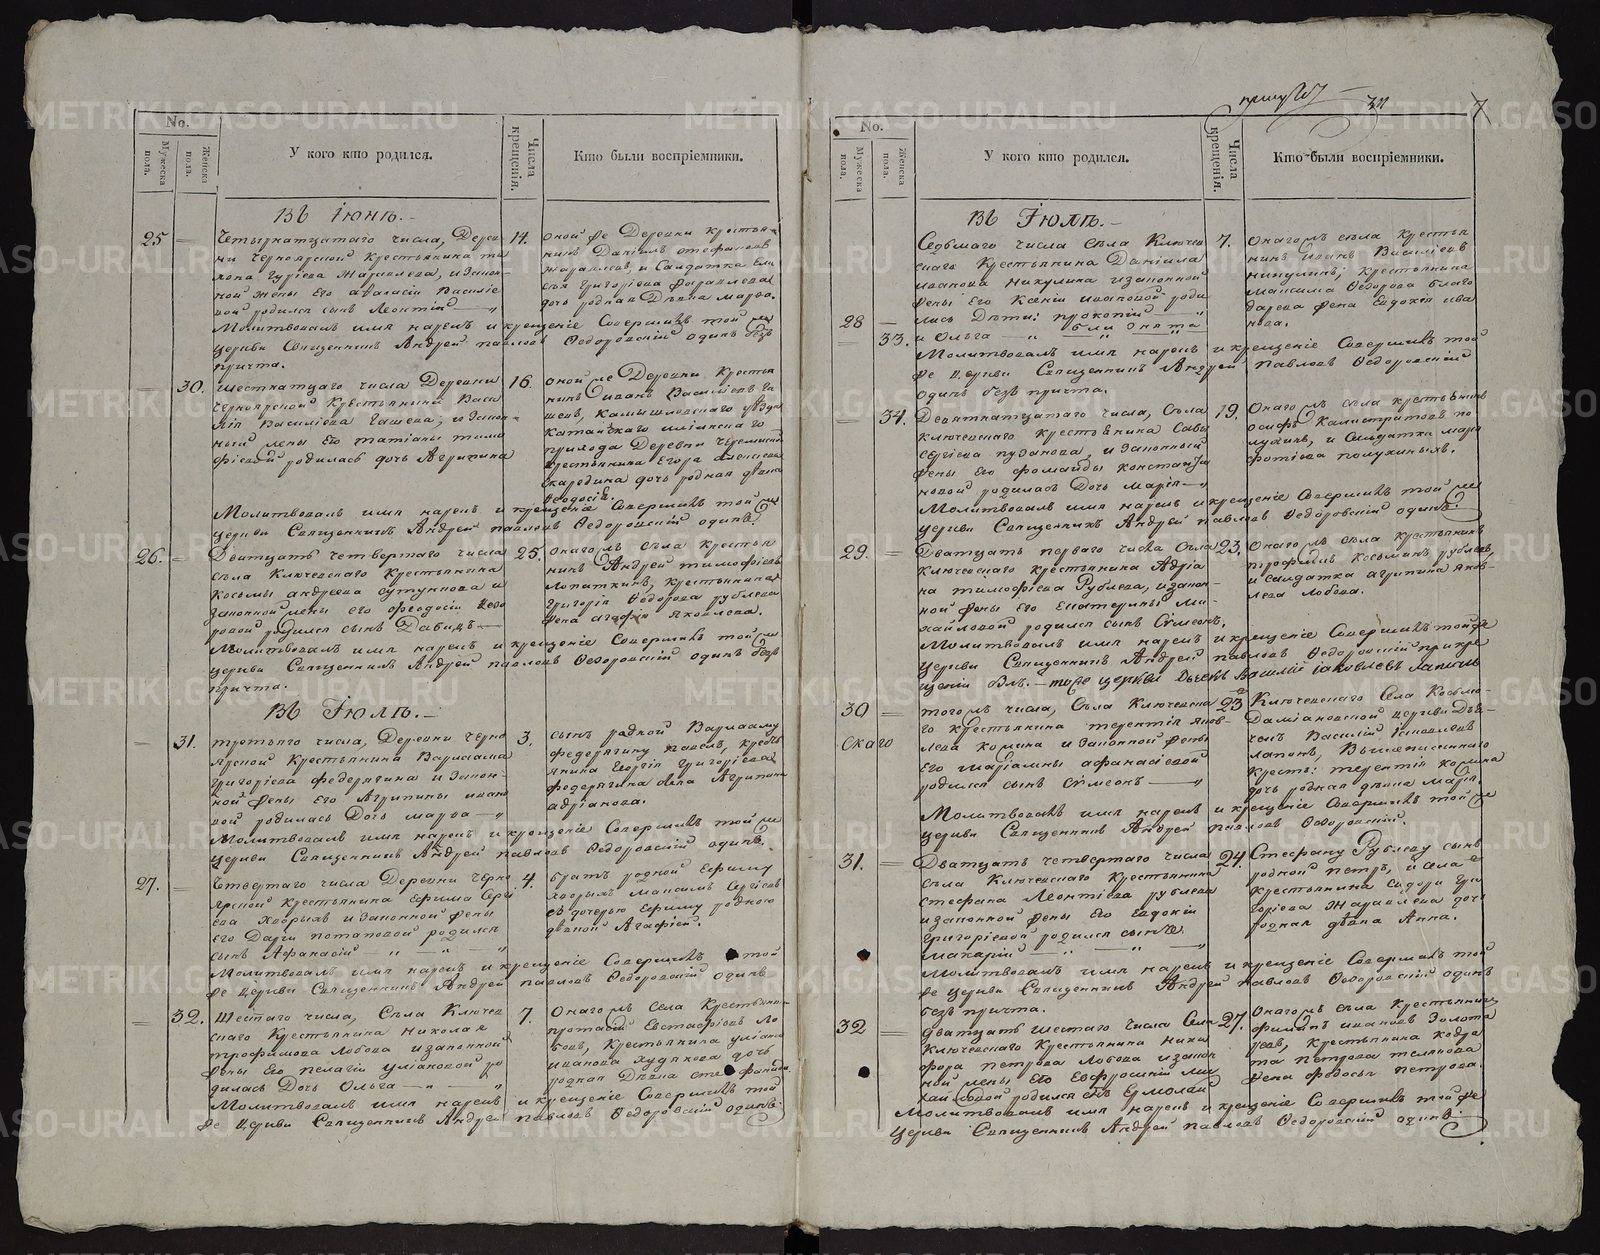 No.
Мужеска пола.
Женска пола.
У кого кто родился.
Числа крещенія.
Кто были воспріемники.
Въ Іюнѣ.
25 — Четырнатцатаго числа, Дерев
ни Черноярской Крестьянина
Гуріева Жаравлева, и закон
ной жены Его Афанасіи Василіе
вой родился сынъ Леонтій
14.
оной же Деревни крестья
нинъ Даніилъ Стефановъ
Жаравлевъ, и Салдатка
Григоріева Жаравлева
дочь родная Дѣвка Марѳа.
Молитвовалъ имя нарекъ и крещеніе Совершилъ той же
церкви Священникъ Андрей Павловъ Ѳедоровскій одинъ безъ
причта.
— 30. Шестнатцаго числа Деревни
Черноярской Крестьянина Васи
лія Василіева Гашева, и закон
ный жены Его Татіаны Тимо
фіевой родилась дочь Агрипина
16.
оной же Деревни Крестья
нинъ Иванъ Василіевъ Га
шевъ, Камышловскаго уѣзда
Катайскаго
прихода Деревни
Крестьянина Егора Алексіева
дочь родная дѣвка
Ѳеодосія.
Молитвовалъ имя нарекъ и крещеніе Совершилъ той же
церкви Священникъ Андрей Павловъ Ѳедоровскій одинъ.
26. — Дватцать четвертаго числа
Села Ключевскаго Крестьянина
Косьмы Андреева Сутункова и
законной жены его Феодосіи Федо
ровой родился сынъ Давидъ
25.
Онагожъ села Крестьян
нинъ Андрей Тимофіевъ
Лопаткинъ, крестьянина
Григорія Ѳедорова Рублева
жена Агафія Яковлева.
Молитвовалъ имя нарекъ и крещеніе Совершилъ той же
церкви Священникъ Андрей Павловъ Ѳедоровскій одинъ безъ
причта.
Въ Іюлѣ.
— 31. Третьяго числа, Деревни Черно
ярской Крестьянина Варлаама
Григоріева Федерягина и закон
ной жены Его Агрипины Ивано
вой родилась Дочь Марѳа
3.
сынъ родной Варлааму
Федерягину Павелъ, крестья
янина Георгія Григоріева
Федерягина жена Агрипина
Адріанова.
Молитвовалъ имя нарекъ и крещеніе Совершилъ той же
церкви Священникъ Андрей Павловъ Ѳедоровскій одинъ.
27. — Четвертаго числа Деревни Черно
ярской Крестьянина Ефима Серги
ева Хворыхъ и законной жены
Его Даріи Потаповой родился
сынъ Афанасій
4.
Братъ родной Ефиму
Хворыхъ Максимъ Сергіевъ
съ дочерью Ефиму родною
дѣвкой Агафіей.
Молитвовалъ имя нарекъ и крещеніе Совершилъ той
же Церкви Священникъ Андрей Павловъ Ѳедоровскій одинъ
— 32. Шестаго числа, Села Ключев
скаго Крестьянина Николая
Трофимова Лобова и законной
жены Его Пелагіи Уліановой ро
дилась Дочь Ольга
7.
Онагожъ Села Крестьянинъ
Протасій Евстафіевъ Ло
бовъ, Крестьянина Уліана
Иванова Худякова дочь
родная Дѣвка Стефанида.
Молитвовалъ имя нарекъ и крещеніе Совершилъ той
же Церкви Священникъ Андрей Павловъ Ѳедоровскій одинъ.
7
No.
Мужеска пола.
Женска пола.
У кого кто родился.
Числа крещенія.
Кто были воспріемники.
Въ Іюлѣ.
Седьмаго числа Села Ключев
скаго Крестьянина Даніила
Иванова Никулина и законной
жены Его Ксеніи Ивановой роди
лись Дѣти: Прокопій
28 —
— 33. и Ольга
7.
Онагожъ села крестья
нинъ Иванъ Василіевъ
Никулинъ; крестьянина
Максима Ѳедорова Благо
дарева жена Евдокія Ива
нова.
Молитвовалъ имя нарекъ и крещеніе Совершилъ той
же Церкви Священникъ Андрей Павловъ Ѳедоровскій
одинъ безъ причта.
— 34. Девятнатцатаго числа, Села
Ключевскаго крестьянина Савы
Сергіева Пуданова, и законный
жены Его Фомаиды Константи
новой родилась Дочь Марія
19.
Онагожъ села крестьянинъ
Осифъ Калистратовъ По
лухинъ, и Салдатка Марія
Фотіева Полухиныхъ.
Молитвовалъ имя нарекъ и крещеніе Совершилъ той же
церкви Священникъ Андрей Павловъ Ѳедоровскій одинъ.
29. — Дватцать перваго числа Села
Ключевскаго крестьянина Адріа
на Тимофіева Рублева, и закон
ной жены Его Екатерины Ми
хайловой родился сынъ Сѵмеонъ.
23.
Онагожъ села крестьянинъ
Трофимъ Косьминъ Рублевъ,
и Салдатка Агрипина Яков
лева Лобова.
Молитвовалъ имя нарекъ и крещеніе Совершилъ той же
Церкви Священникъ Андрей Павловъ Ѳедоровскій при кре
щеніи былъ той же церкви Дьячекъ Василій Іаковлевъ Лапинъ
30 — Тогожъ числа, Села Ключевска
го крестьянина Терентія Яков
скаго
лева Комина и законной жены
Его Маріамны Афанасіевой
родился сынъ Сѵмеонъ
23
Ключевскаго Села Косьмо-
Даміановской церкви Дья
чекъ Василій Іаковлевъ
Лапинъ, Вышеписаннаго
крестъ: Терентія Комина
дочь родная дѣвка Марія.
Молитвовалъ имя нарекъ и крещеніе Совершилъ той же
церкви Священникъ Андрей Павловъ Ѳедоровскій.
31. — Дватцать четвертаго числа
села Ключевскаго Крестьянина
Стефана Леонтіева Рублева
и законной жены Его Евдокіи
Григоріевой родился сынъ
Макарій
24.
Стефану Рублеву сынъ
родной Петръ, и
крестьянина Сидора Гри
горіева Жаравлева дочь
родная дѣвка Анна.
Молитвовалъ имя нарекъ и крещеніе Совершилъ той
же церкви Священникъ Андрей Павловъ Ѳедоровскій одинъ
безъ причта.
32 — Дватцать шестаго числа Села
Ключевскаго Крестьянина Ники
фора Петрова Лобова и закон
ной жены Его Евфросиніи Ми
хайловой родился сынъ Ермолай
27.
Онагожъ села Крестьянинъ
Филипъ Ивановъ Золота
ревъ, крестьянина Кодра
та Петрова Темякова
жена Федосья Петрова.
Молитвовалъ имя нарекъ и крещеніе Совершилъ той же
Церкви Священникъ Андрей Павловъ Ѳедоровскій одинъ.
METRIKI.GASO-URAL.RU